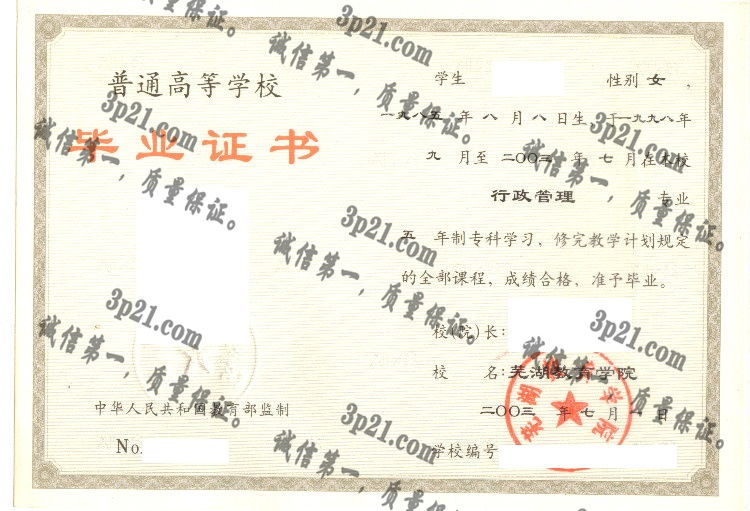 普通高等学校
毕业证书
中华人民共和国教育部监制
No.
学生 性别 女 ,
一九八五 年 八 月 八 日生, 于一九九八年
九 月至 二〇〇三 年 七 月在本校
行政管理 专业
五 年制专科学习, 修完教学计划规定
的全部课程, 成绩合格, 准予毕业。
校(院)长:
校 名: 芜湖教育学院
二〇〇三 年 七 月 一 日
学校编号
芜湖教育学院
3p21.com
诚信第一, 质量保证。
3p21.com
诚信第一, 质量保证。
3p21.com
诚信第一, 质量保证。
3p21.com
诚信第一, 质量保证。
3p21.com
诚信第一, 质量保证。
3p21.com
诚信第一, 质量保证。
3p21.com
诚信第一, 质量保证。